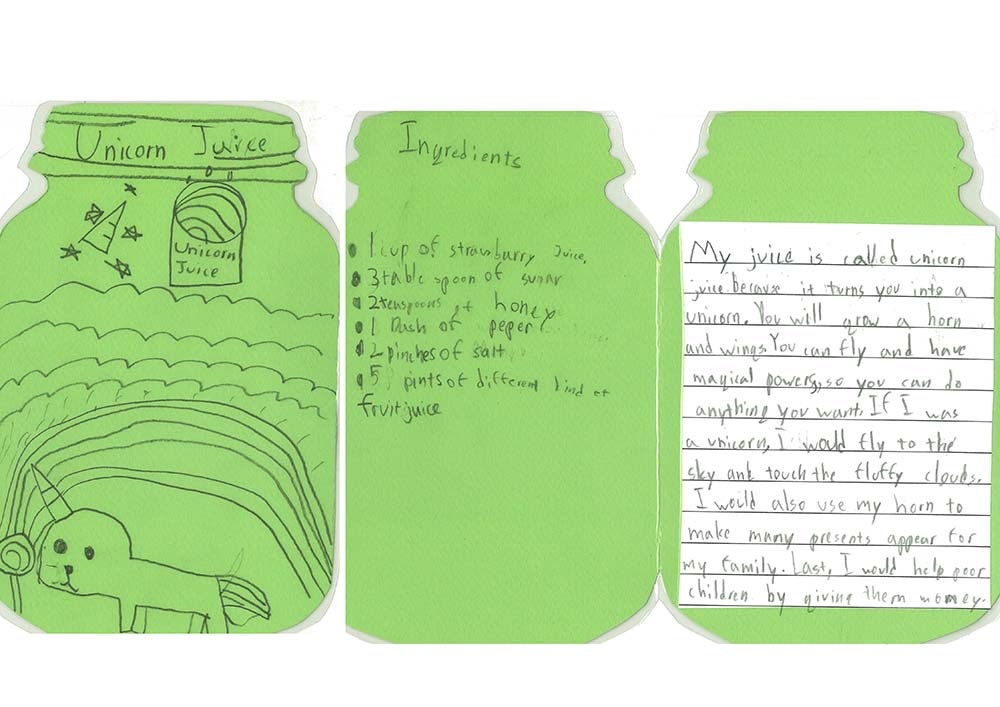 Unicorn Juice
Unicorn
Juice
Ingredients
1 cup of strawburry Juice,
3 table spoon of sugar
2 teaspoons of honey
1 Dash of peper
2 pinches of salt
5 pints of different kind of
fruit juice
My juice is called unicorn
juice because it turns you into a
unicorn. You will grow a horn
and wings. You can fly and have
magical powers, so you can do
anything you want. If I was
a unicorn, I would fly to the
sky and touch the fluffy clouds.
I would also use my horn to
make many presents appear for
my family. Last, I would help poor
children by giving them money.